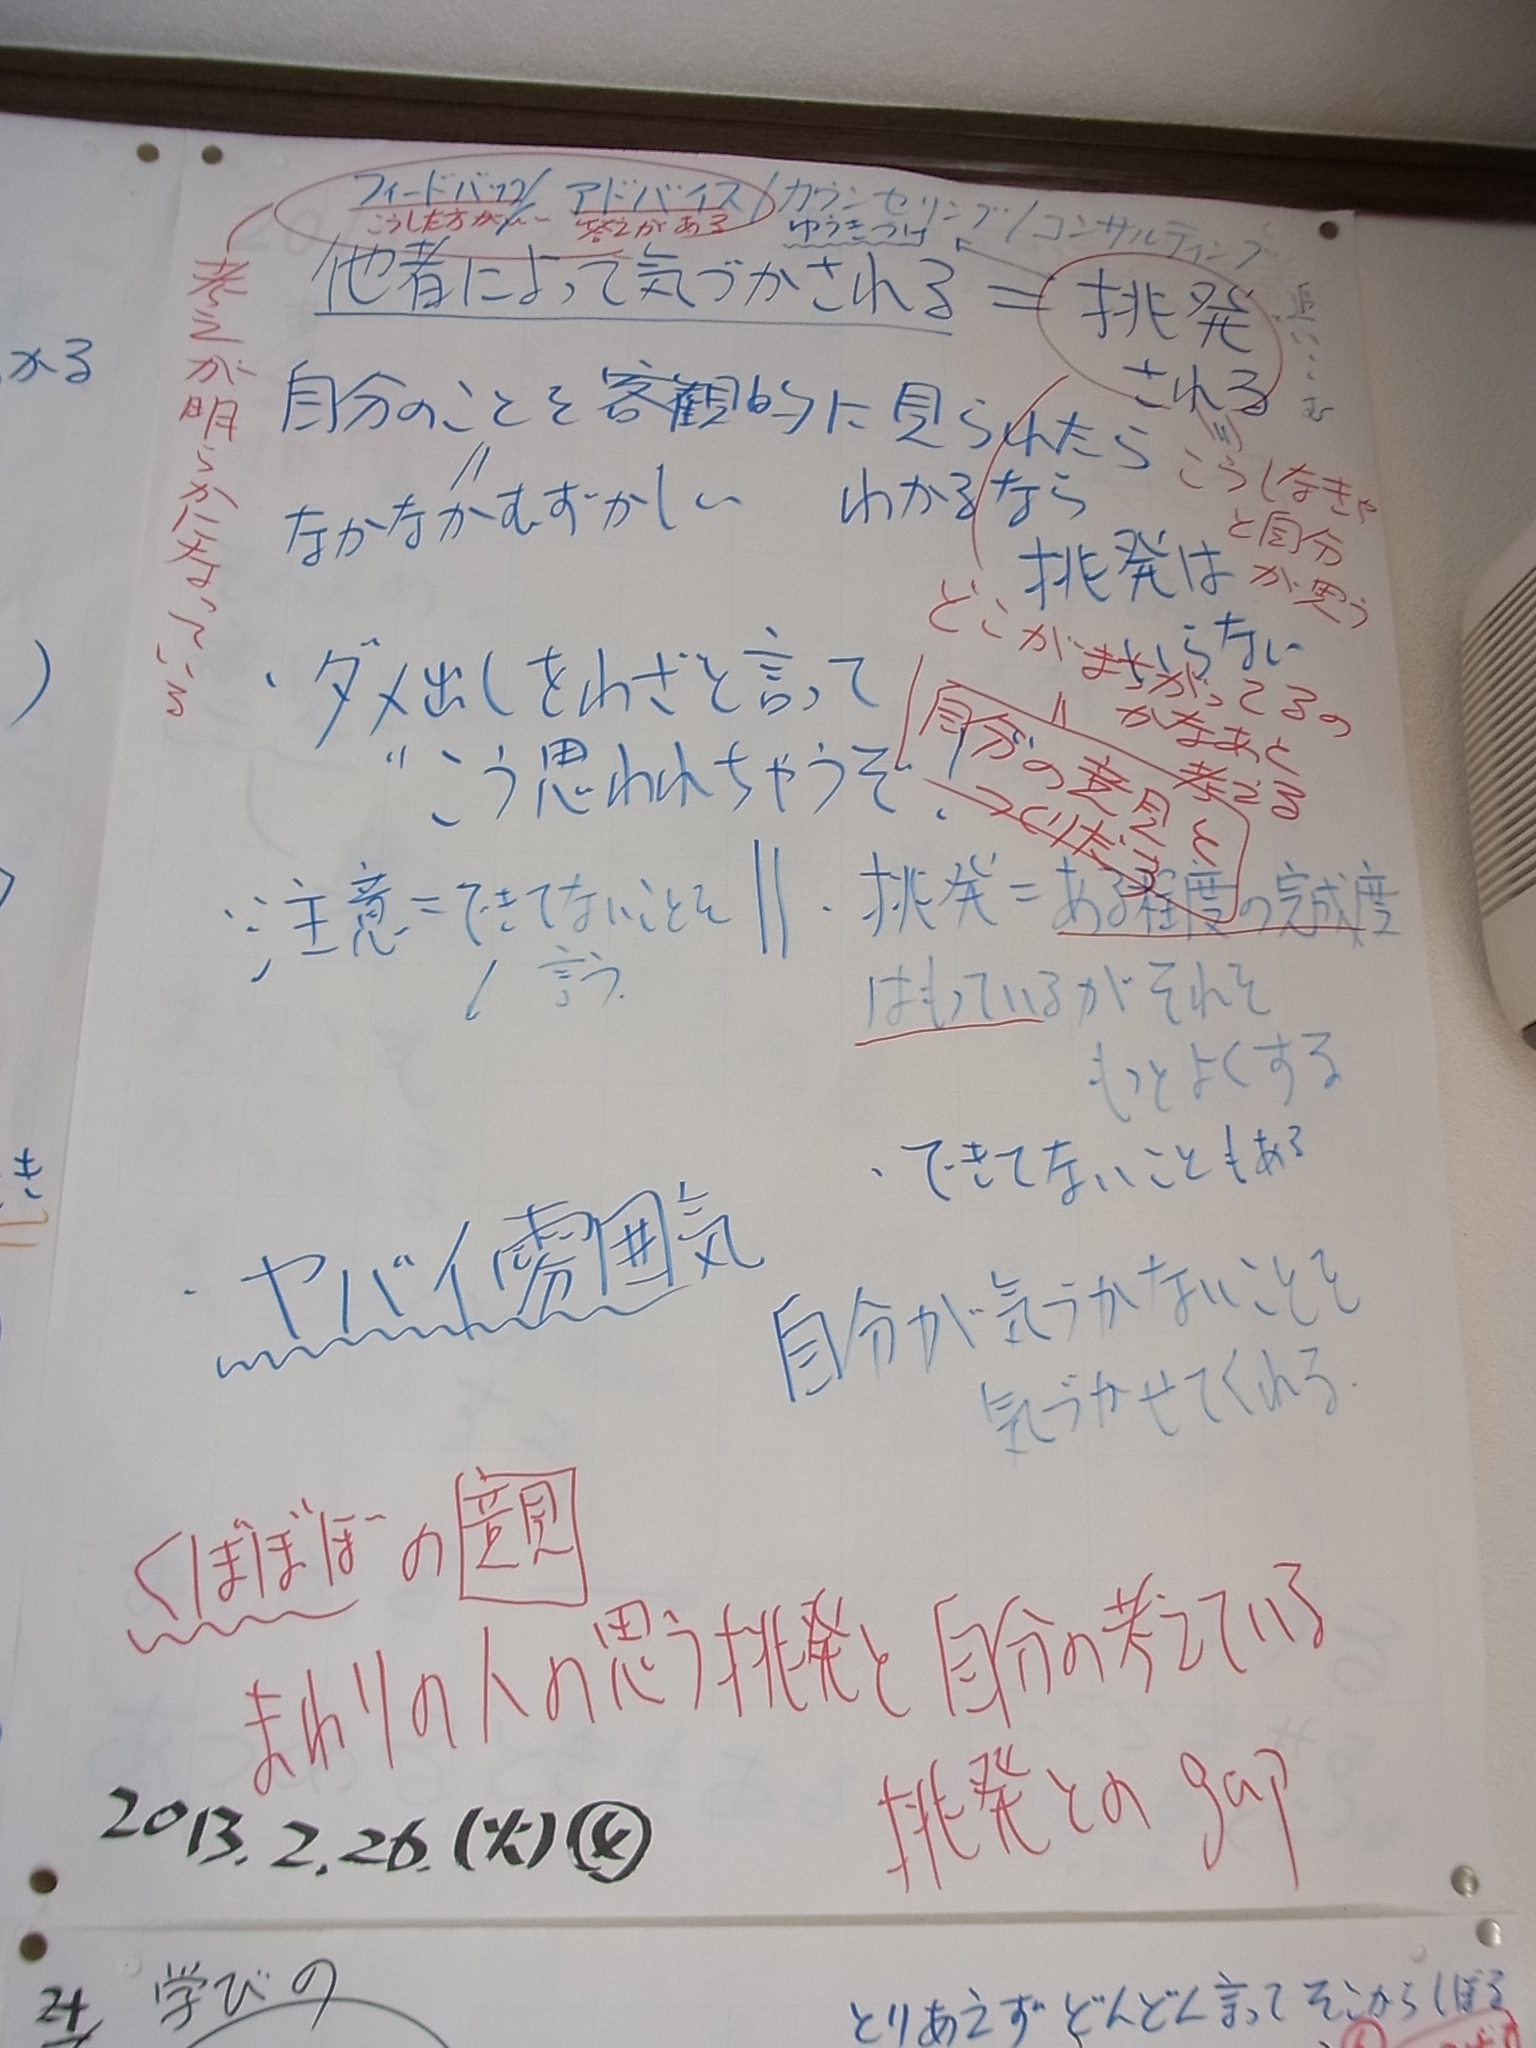 フィードバック/アドバイス/カウンセリング/コンサルティング
こうした方がいい 答えがある ゆうきづけ
他者によって気づかされる=挑発
される
追いこむ
答えが明らかになっている
自分のことを客観的に見られたら
なかなかむずかしい わかるなら
挑発は
いらない
こうしなきゃ
と自分
が思う
どこがまちがってるの
かなあと
考える
自分の意見を
つくりだす
・ダメ出しをわざと言って
"こう思われちゃうぞ!
注意=できてないことを
言う.
・挑発=ある程度の完成度
はもっているがそれを
もっとよくする
・できてないこともある
・ヤバイ雰囲気
自分が気づかないことを
気づかせてくれる.
くぼぼぼの意見
まわりの人の思う挑発と自分の考えている
挑発とのgap
2013.2.26.(火)④
かる
)
き
24
学びの
とりあえずどんどん言ってそこからしぼる